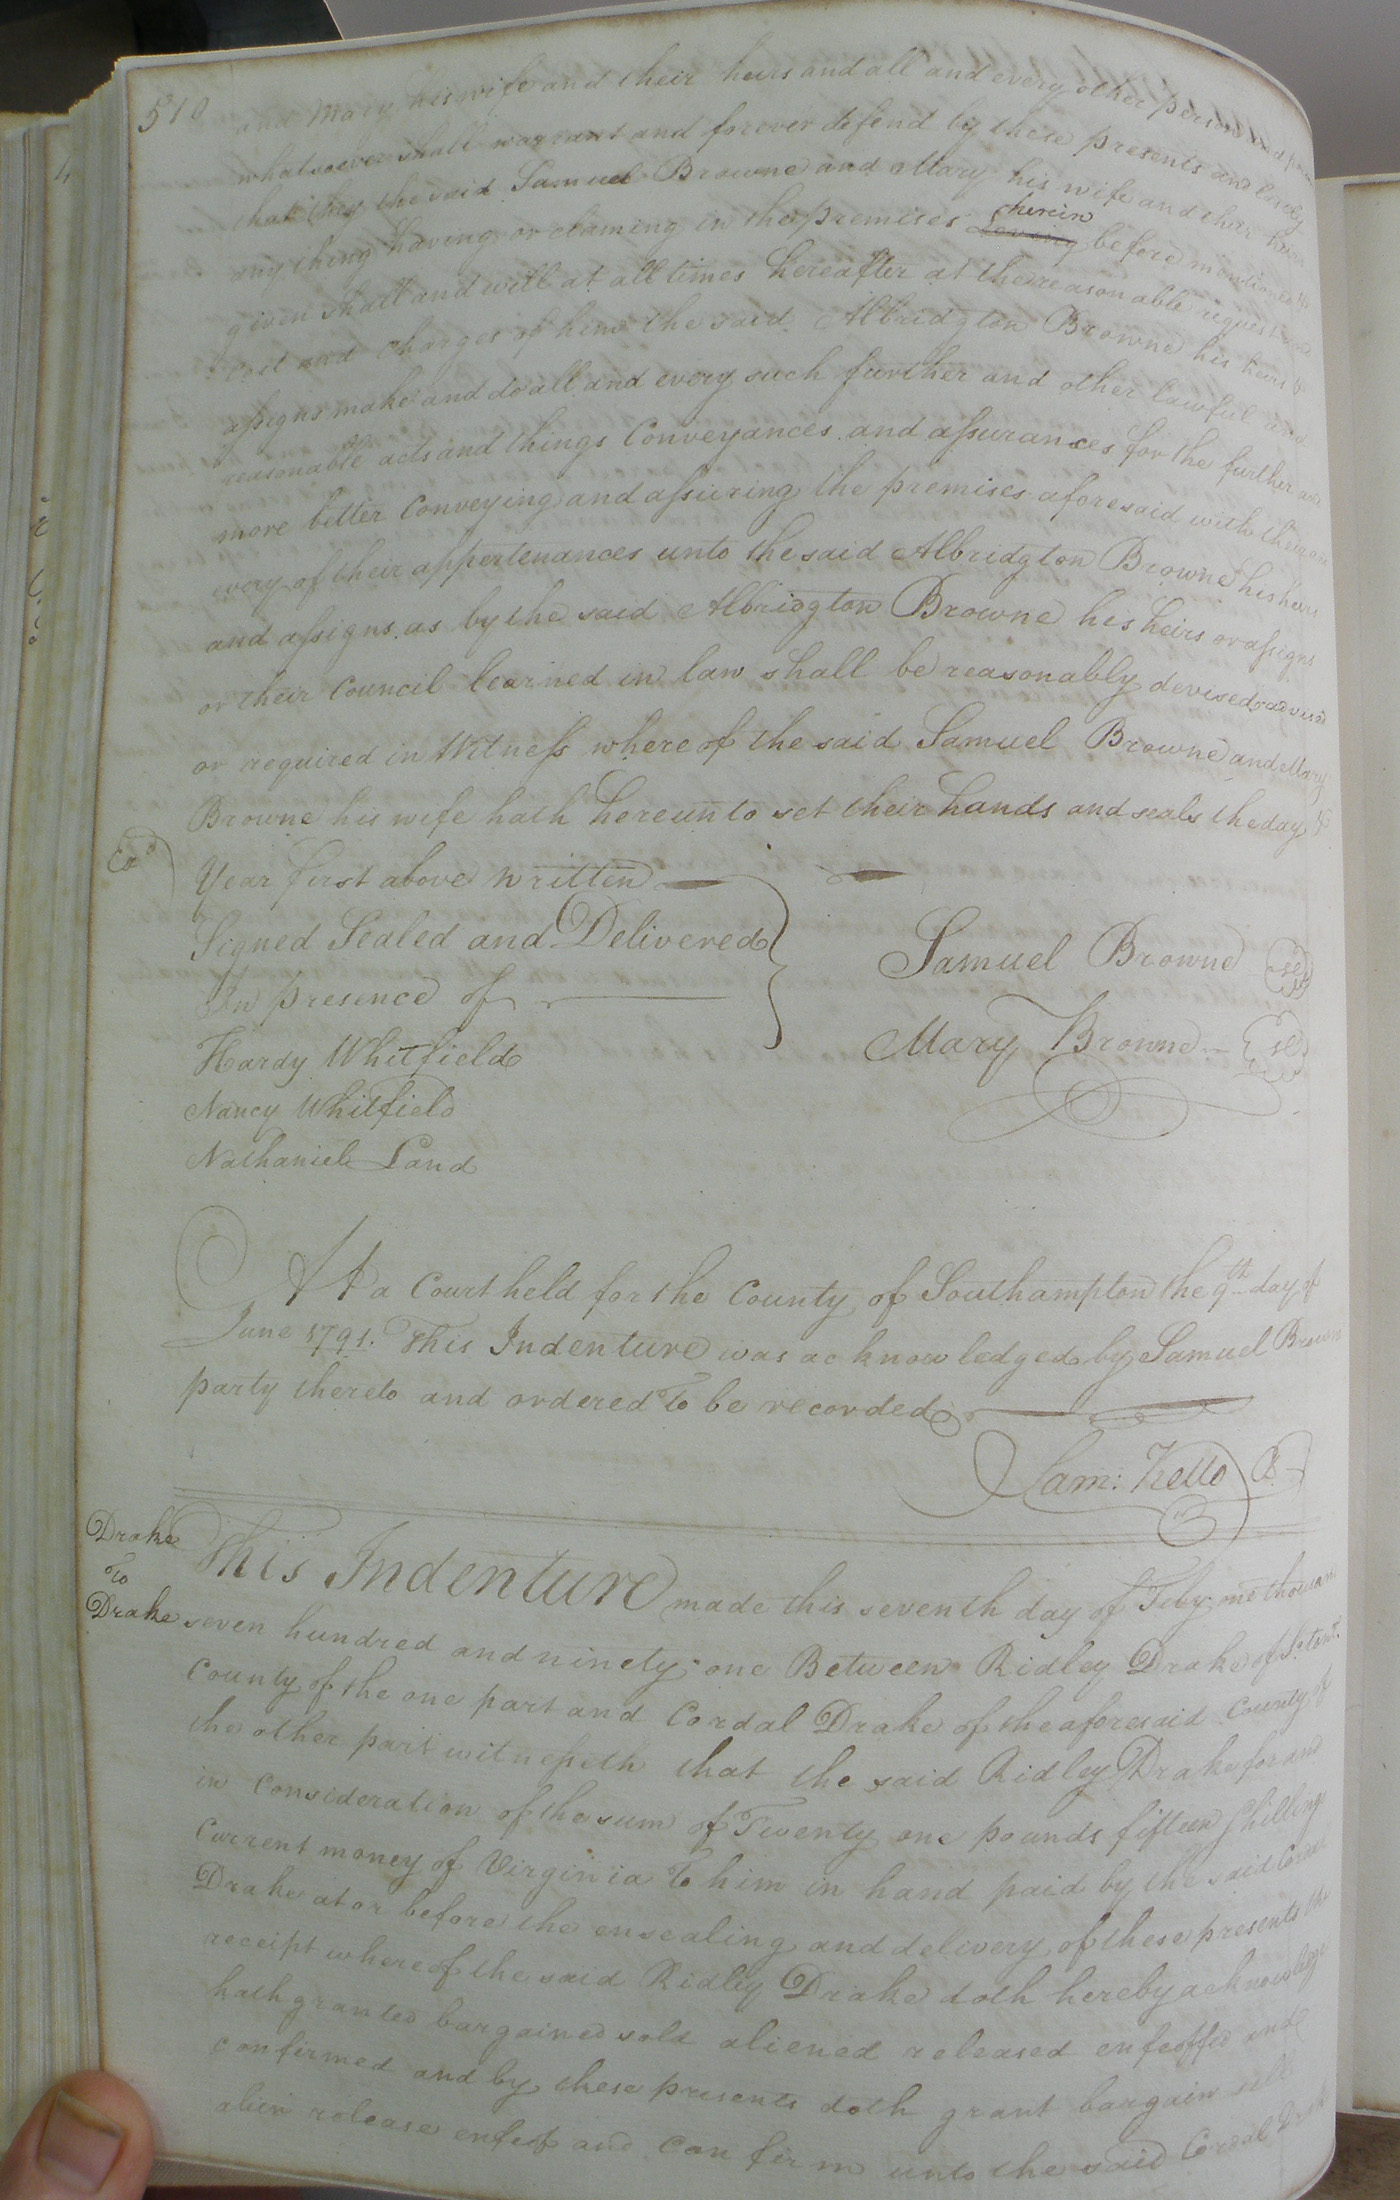 510
and Mary his wife and their heirs and all and every other person and
whatsoever shall warrant and forever defend by these presents and lastly
that they the said Samuel Browne and Mary his wife and their heirs
any thing having or claming in the premises herein before mentioned to
given shall and will at all times hereafter at the reasonable request and
cost and charges of him the said Albridgton Browne his heirs &
assigns make and do all and every such further and other lawful and
reasonable acts and things Conveyances and assurances for the further and
more better Conveying and assuring the premises aforesaid with their and
every of their appertenances unto the said Albridgton Browne his heirs
and assigns as by the said Albridgton Browne his heirs or assigns
or their Council learned in law shall be reasonably devised advised
or required in Witness where of the said Samuel Browne and Mary
Browne his wife hath hereunto set their hands and seals the day &
Exd
Year first above written
Signed Sealed and Delivered
In presence of
Samuel Browne
Hardy Whitfield
Mary Browne
Nancy Whitfield
Nathaniel Land
At a Court held for the County of Southampton the 9th day of
June 1791. This Indenture was acknowledged by Samuel Brown
party thereto and ordered to be recorded
Sam: Kello
Drake
To
Drake
This Indenture made this seventh day of Feby one thousand
seven hundred and ninety one Between Ridley Drake of
County of the one part and Cordal Drake of the aforesaid County of
the other part witnesseth that the said Ridley Drake for and
in Consideration of the sum of Twenty one pounds fifteen Shillings
Current money of Virginia To him in hand paid by the said Cordal
Drake at or before the ensealing and delivery of these presents the
receipt whereof the said Ridley Drake doth hereby acknowledge
hath granted bargained sold aliened released enfeoffed and
confirmed and by these presents doth grant bargain sell
alien release enfeof and Confirm unto the said Cordal Drake